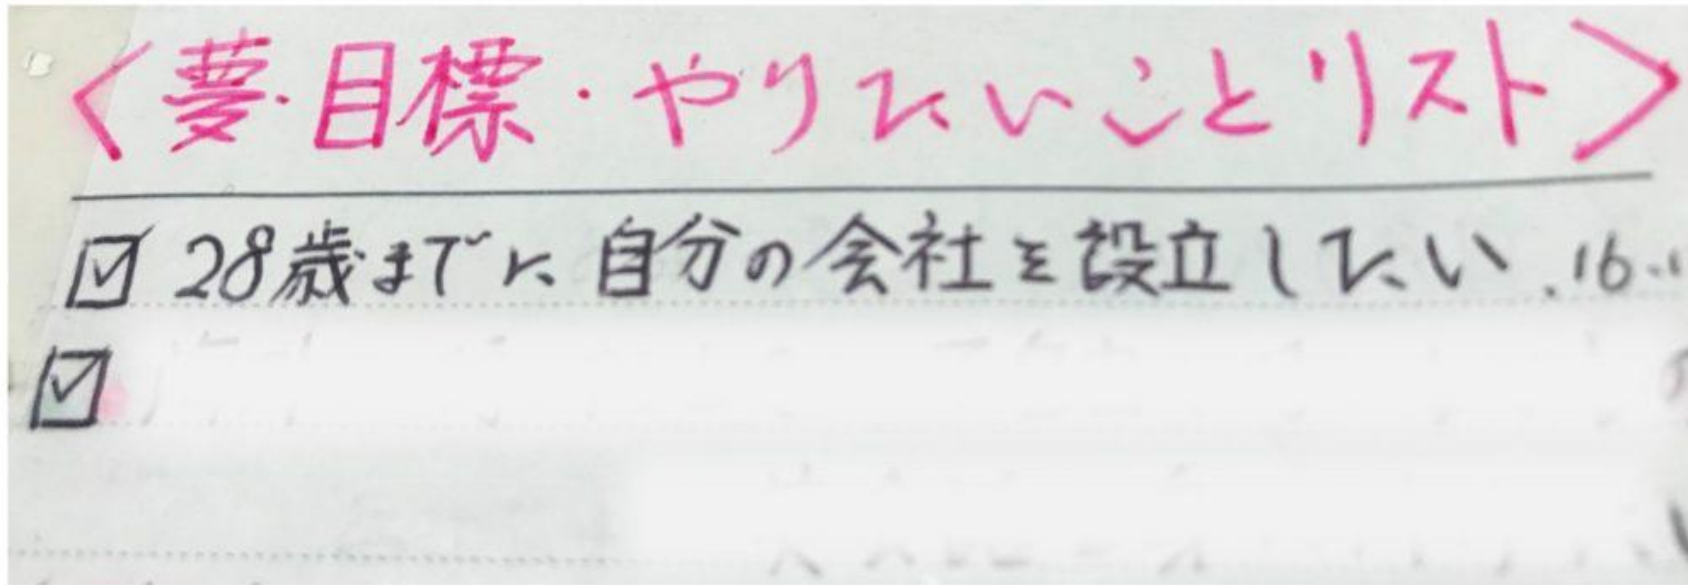 <夢・目標・やりたいことリスト>
☑ 28歳までに自分の会社を設立したい.16..
☑